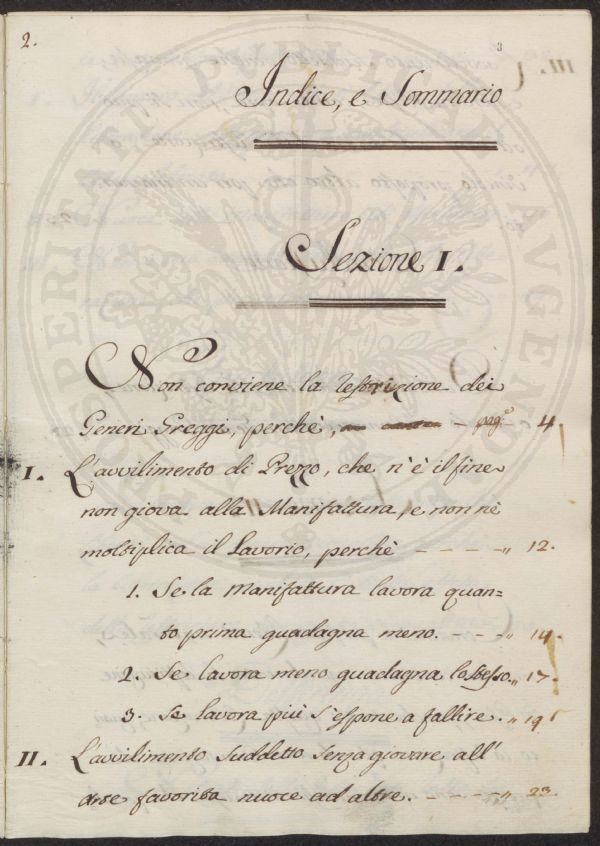 2.
3
Indice, e Sommario
Sezione I.
Non conviene la Restrizione dei
Generi Greggi, perchè, - pag.ᵉ 4.
I. L'avvilimento di Prezzo, che n'è il fine
non giova alla Manifattura, e non nè
moltiplica il Lavorio, perchè - - - - „ 12.
1. Se la Manifattura lavora quan=
to prima guadagna meno. - - - „ 14.
2. Se lavora meno guadagna lo stesso. „ 17.
3. Se lavora più s'espone a fallire. „ 19
II. L'avvilimento suddetto senza giovare all'
Arte favorita nuoce ad altre. - - - - „ 23.
PROSPERITATI PUBLICAE AUGENDAE